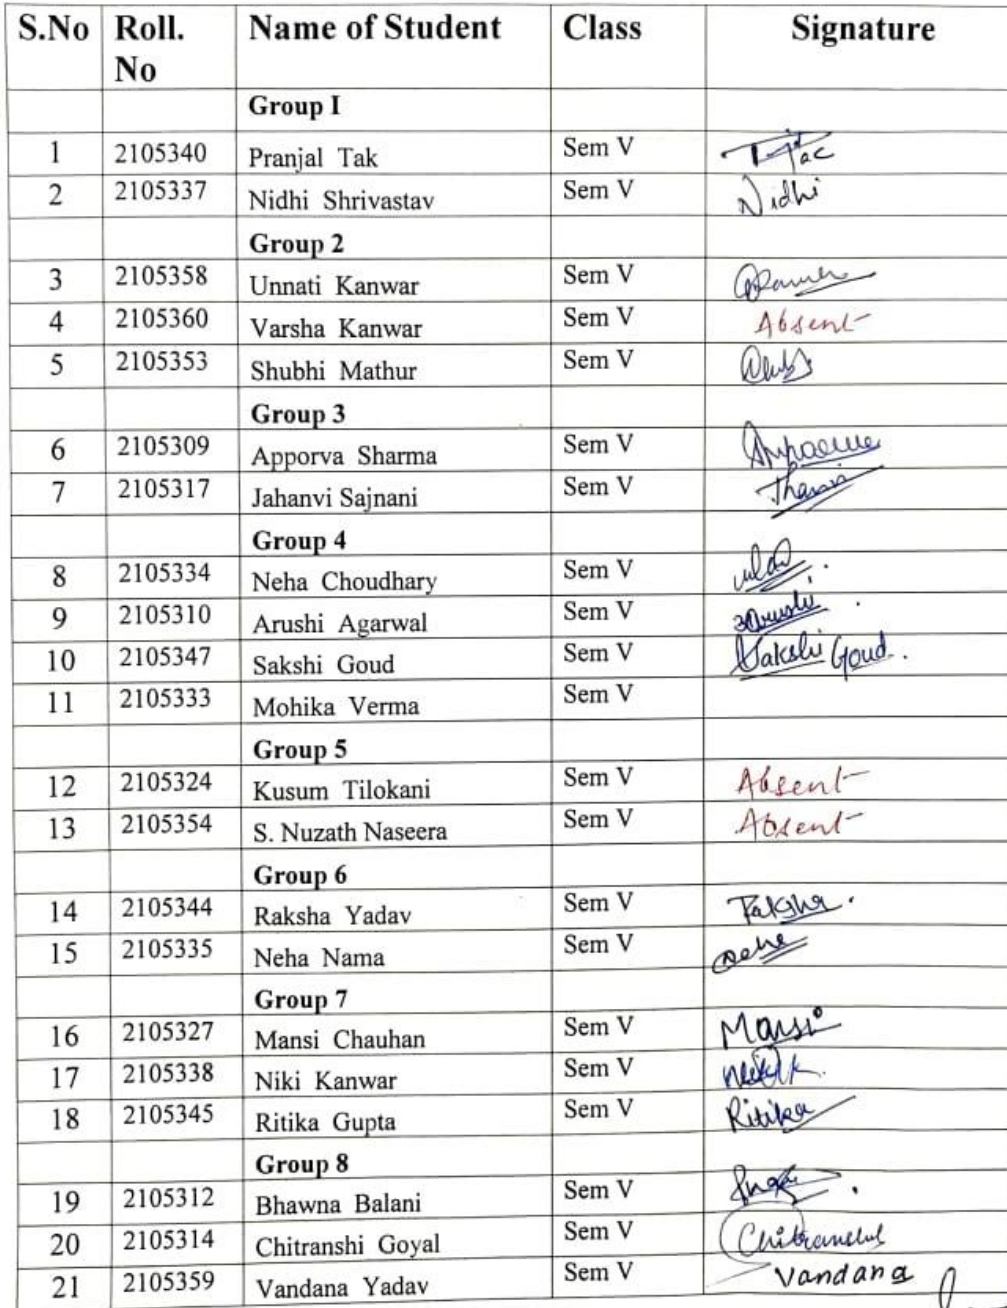 S.No Roll. No Name of Student Class Signature
Group I
1 2105340 Pranjal Tak Sem V
2 2105337 Nidhi Shrivastav Sem V Nidhi
Group 2
3 2105358 Unnati Kanwar Sem V
4 2105360 Varsha Kanwar Sem V Absent
5 2105353 Shubhi Mathur Sem V
Group 3
6 2105309 Apporva Sharma Sem V
7 2105317 Jahanvi Sajnani Sem V
Group 4
8 2105334 Neha Choudhary Sem V
9 2105310 Arushi Agarwal Sem V
10 2105347 Sakshi Goud Sem V Sakshi Goud.
11 2105333 Mohika Verma Sem V
Group 5
12 2105324 Kusum Tilokani Sem V Absent
13 2105354 S. Nuzath Naseera Sem V Absent
Group 6
14 2105344 Raksha Yadav Sem V
15 2105335 Neha Nama Sem V
Group 7
16 2105327 Mansi Chauhan Sem V Mansi
17 2105338 Niki Kanwar Sem V
18 2105345 Ritika Gupta Sem V Ritika
Group 8
19 2105312 Bhawna Balani Sem V
20 2105314 Chitranshi Goyal Sem V
21 2105359 Vandana Yadav Sem V Vandana